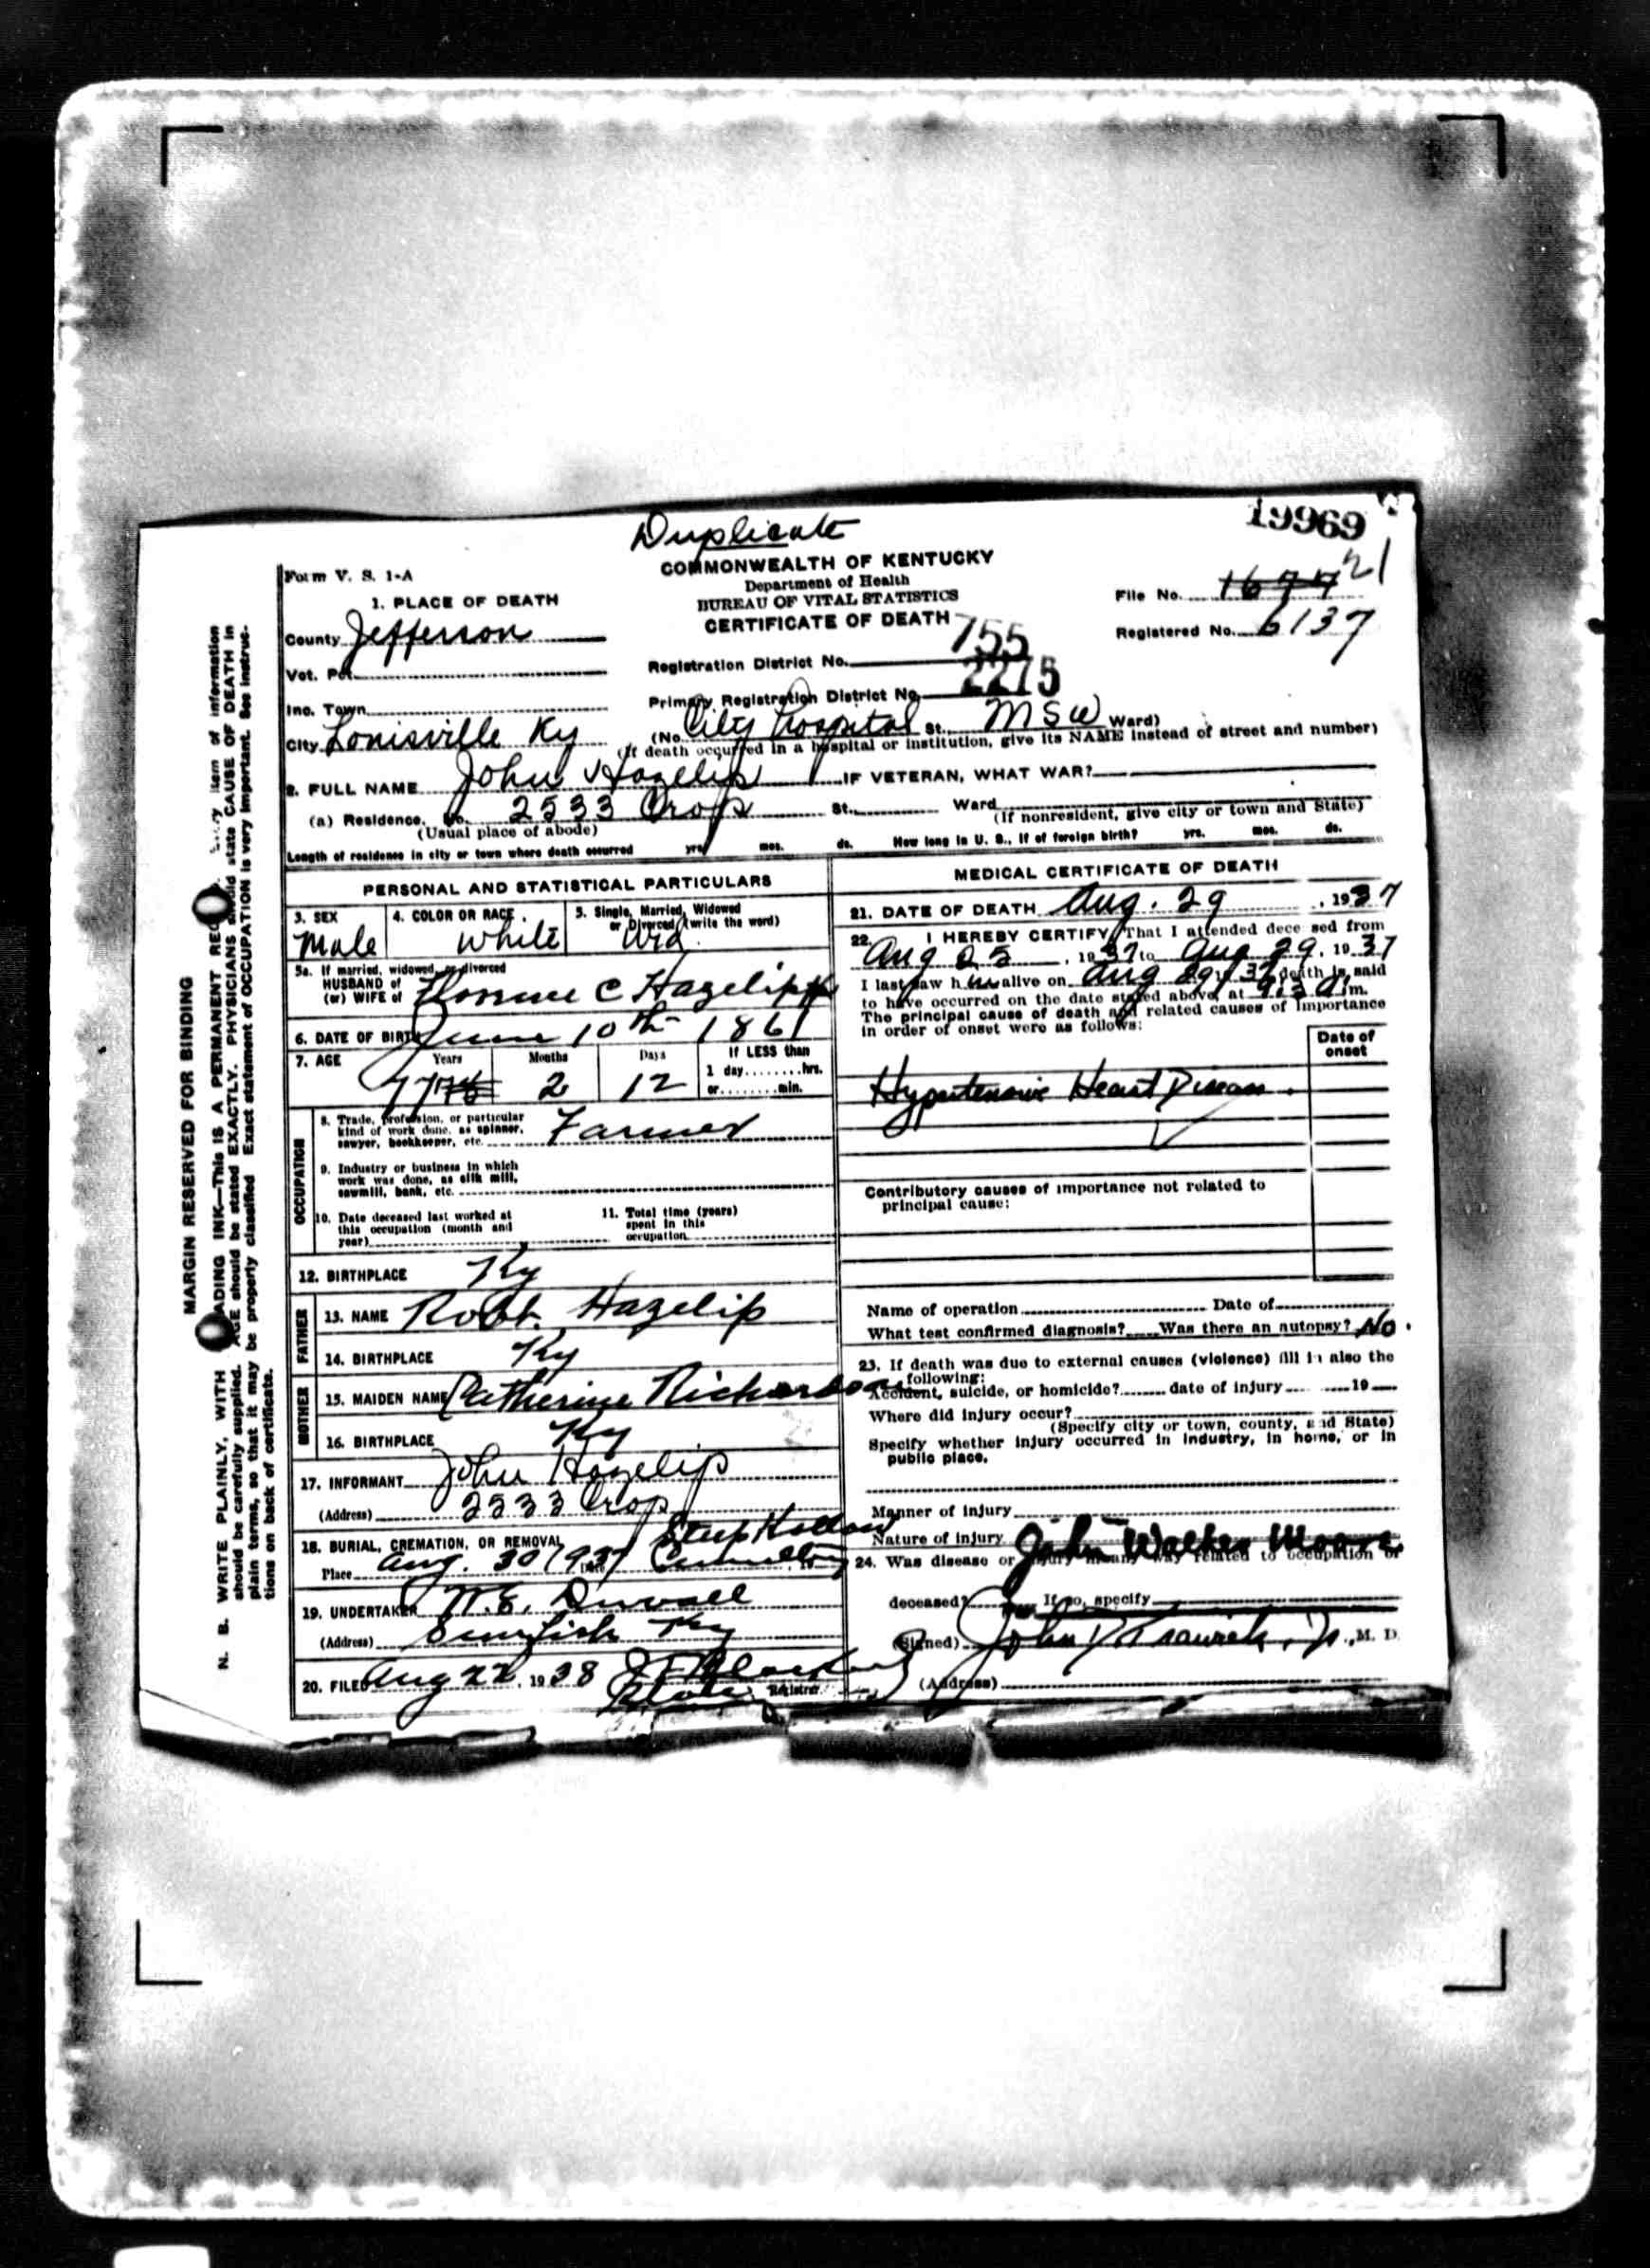 Duplicate
19969
COMMONWEALTH OF KENTUCKY
Form V. S. 1-A
Department of Health
BUREAU OF VITAL STATISTICS
CERTIFICATE OF DEATH
File No. 1677 21
Registered No. 6137
1. PLACE OF DEATH
County Jefferson
Vot. Pct.
Inc. Town
City Louisville Ky
Registration District No. 755
Primary Registration District No. 2275
(No. City Hospital St., MSW Ward)
(If death occurred in a hospital or institution, give its NAME instead of street and number)
2. FULL NAME John Hazelip IF VETERAN, WHAT WAR?
(a) Residence. No. 2533 Crop St. Ward
(Usual place of abode) (If nonresident, give city or town and State)
Length of residence in city or town where death occurred yrs. mos. ds. How long in U. S., if of foreign birth? yrs. mos. ds.
PERSONAL AND STATISTICAL PARTICULARS
3. SEX Male
4. COLOR OR RACE White
5. Single, Married, Widowed or Divorced (write the word) Wid.
5a. If married, widowed, or divorced
HUSBAND of
(or) WIFE of C Hazelipp
6. DATE OF BIRTH June 10th 1861
7. AGE Years Months Days If LESS than
1 day hrs.
77 2 12 or min.
OCCUPATION
8. Trade, profession, or particular
kind of work done, as spinner,
sawyer, bookkeeper, etc. Farmer
9. Industry or business in which
work was done, as silk mill,
sawmill, bank, etc.
10. Date deceased last worked at
this occupation (month and
year)
11. Total time (years)
spent in this
occupation
12. BIRTHPLACE Ky
FATHER
13. NAME Robt. Hazelip
14. BIRTHPLACE Ky
MOTHER
15. MAIDEN NAME Catherine Richardson
16. BIRTHPLACE Ky
17. INFORMANT John Hazelip
(Address) 2533 Crop
18. BURIAL, CREMATION, OR REMOVAL Steep Hollow
Place Aug. 30 1937 Date 19
19. UNDERTAKER Duvall
(Address) Sunfish Ky
20. FILED Aug 22, 1938 Registrar
MEDICAL CERTIFICATE OF DEATH
21. DATE OF DEATH Aug. 29, 1937
22. I HEREBY CERTIFY, That I attended deceased from
Aug 25, 1937 to Aug 29, 1937
I last saw him alive on Aug 29, 37 death is said
to have occurred on the date stated above, at 9:30 a.m.
The principal cause of death and related causes of importance
in order of onset were as follows:
Date of
onset
Hypertensive Heart Disease.
Contributory causes of importance not related to
principal cause:
Name of operation Date of
What test confirmed diagnosis? Was there an autopsy? No.
23. If death was due to external causes (violence) fill in also the
following:
Accident, suicide, or homicide? date of injury 19
Where did injury occur?
(Specify city or town, county, and State)
Specify whether injury occurred in industry, in home, or in
public place.
Manner of injury
Nature of injury John Walker Moore
24. Was disease or injury in any way related to occupation of
deceased? If so, specify
(Signed) John Jr., M. D.
(Address)
MARGIN RESERVED FOR BINDING
N. B. WRITE PLAINLY, WITH ADING INK—THIS IS A PERMANENT REC item of information
should be carefully supplied. AGE should be stated EXACTLY. PHYSICIANS should state CAUSE OF DEATH in
plain terms, so that it may be properly classified. Exact statement of OCCUPATION is very important. See instruc-
tions on back of certificate.